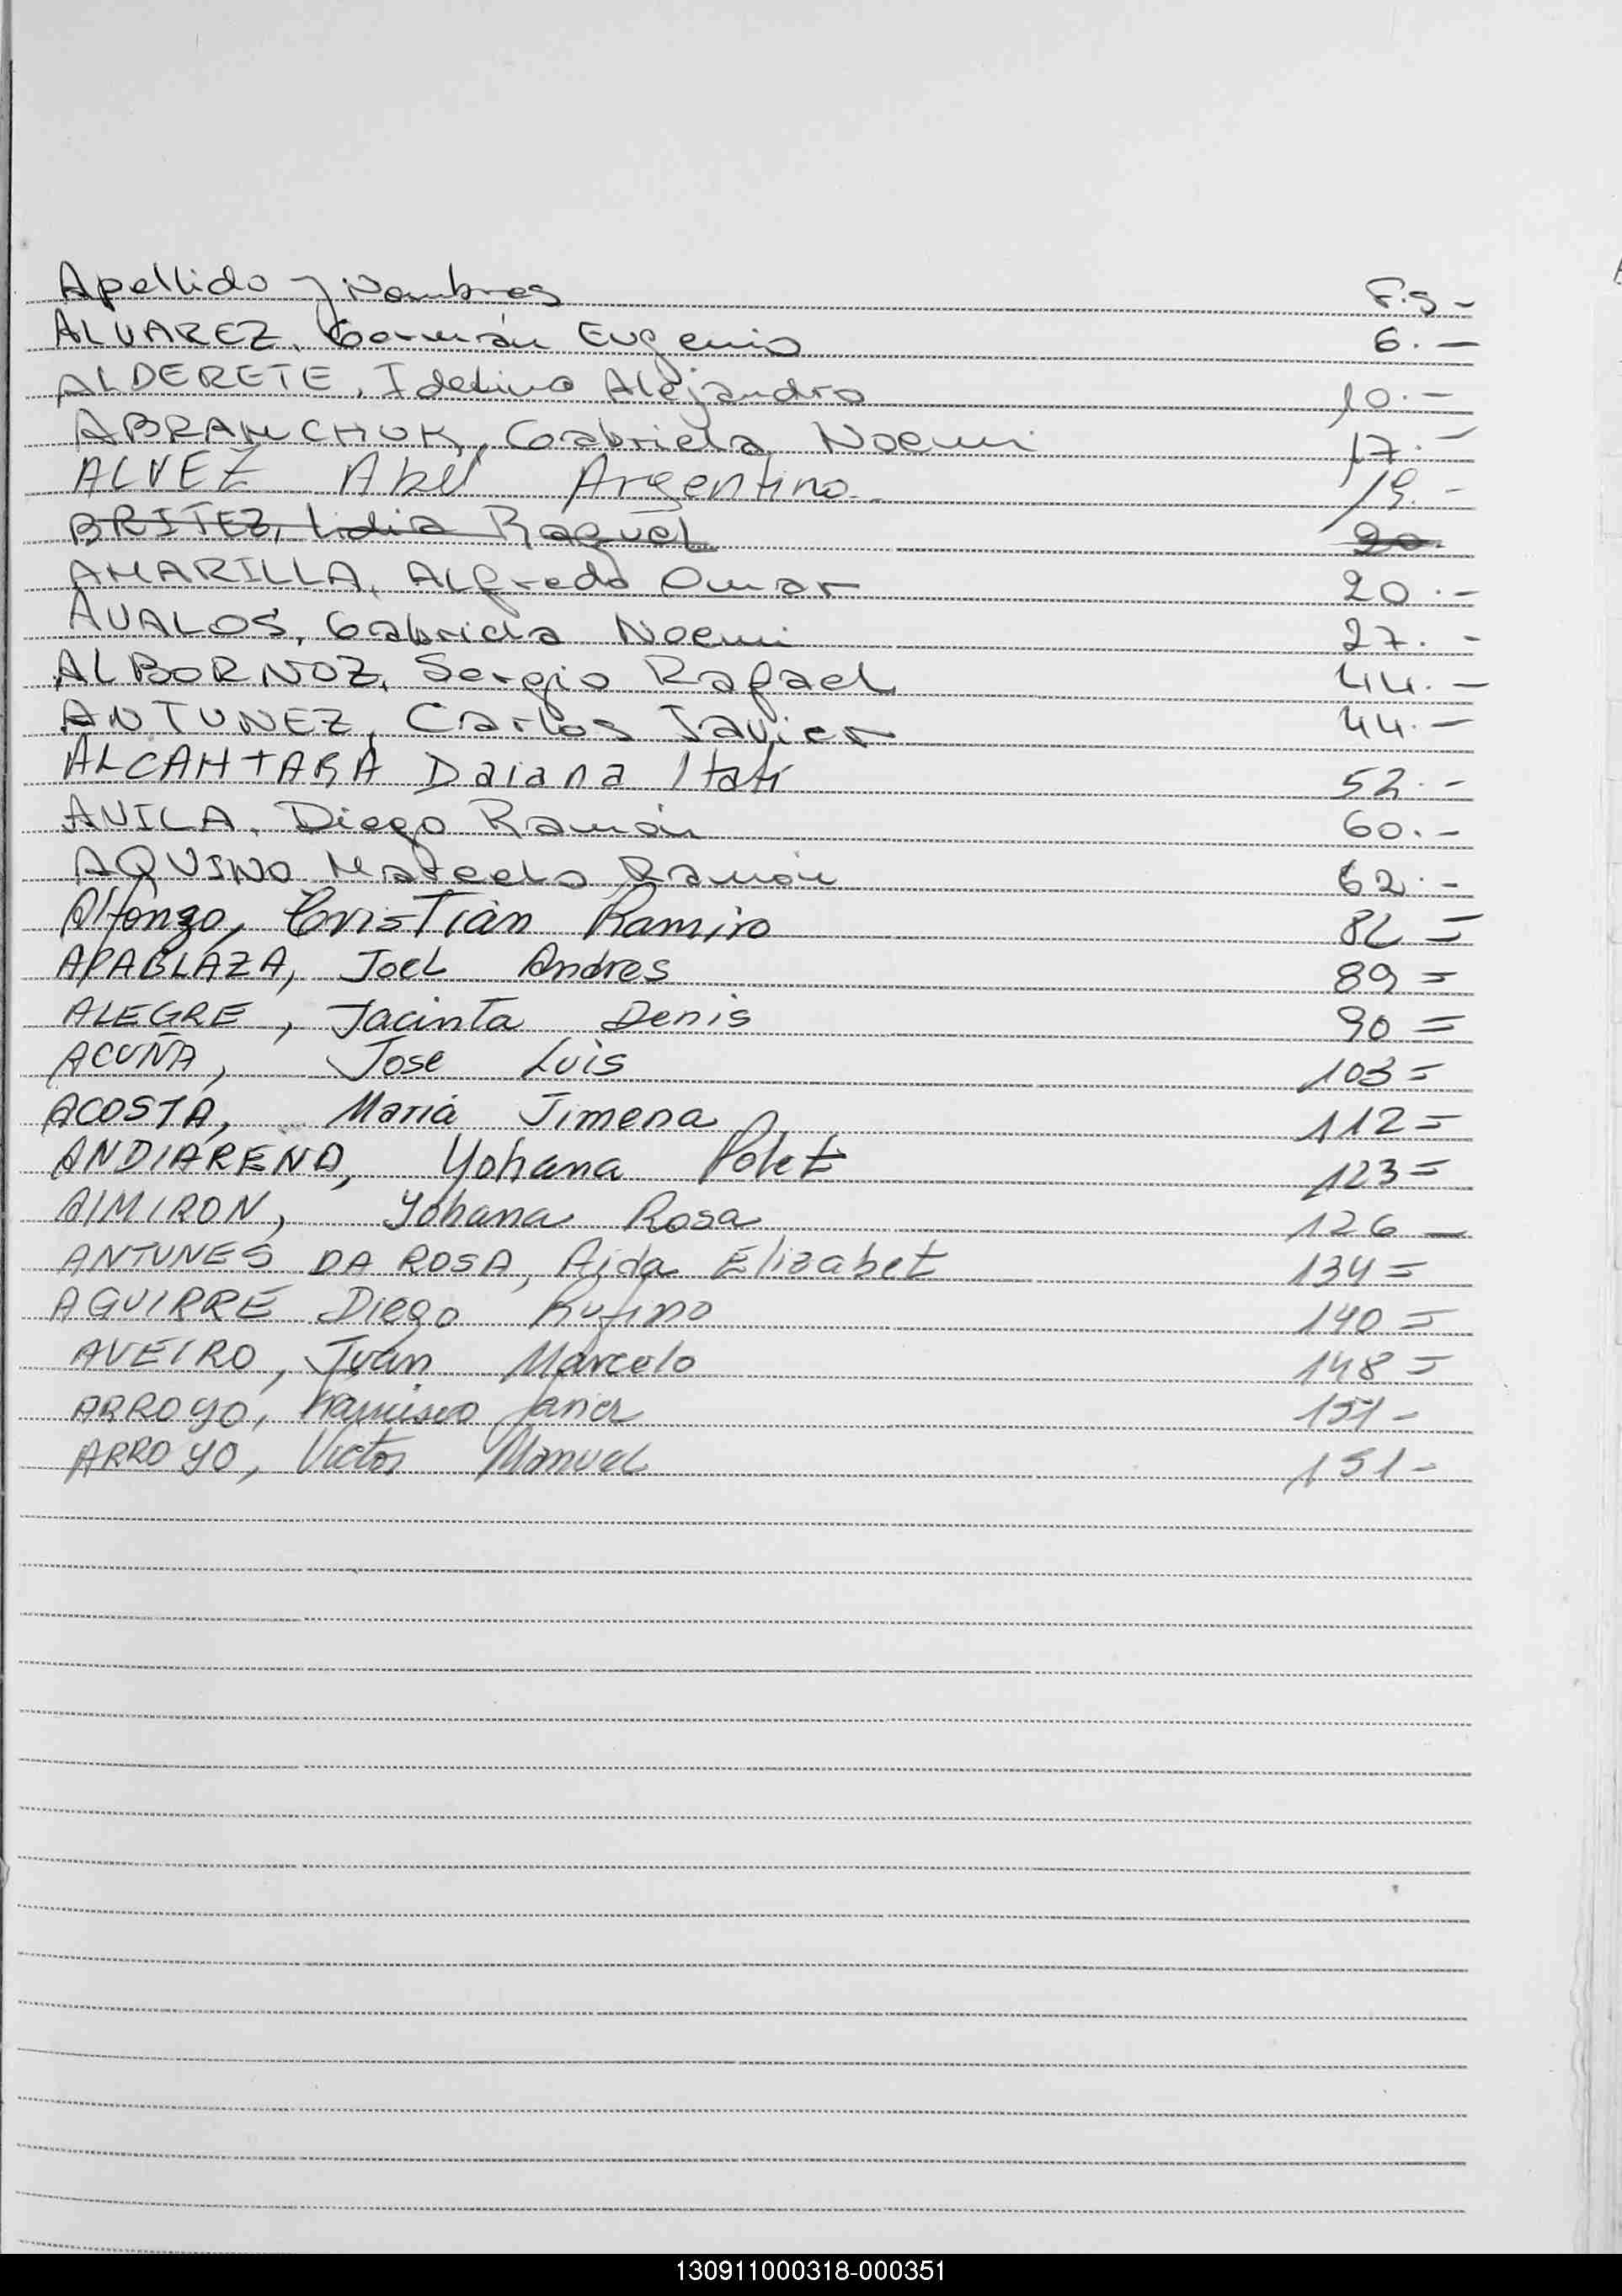 Apellido y Nombres F.s -
ALVAREZ, Germán Eugenio 6.-
ALDERETE, Idelino Alejandro 10.-
ABRAMCHUK, Gabriela Noemi 17.-
ALVEZ Abel Argentino 19.-
BRITEZ, Lidia Raquel 20.
AMARILLA, Alfredo Omar 20.-
AVALOS, Gabriela Noemi 27.-
ALBORNOZ, Sergio Rafael 44.-
ANTUNEZ, Carlos Javier 44.-
ALCANTARA Daiana Itatí 52.-
AVILA, Diego Ramón 60.-
AQUINO Marcelo Ramón 62.-
Alfonzo, Cristián Ramiro 82=
APABLAZA, Joel Andres 89=
ALEGRE, Jacinta Denis 90=
ACUÑA, Jose Luis 103=
ACOSTA, Maria Jimena 112=
ANDIARENA, Yohana Polet 123=
ALMIRON, Yohana Rosa 126-
ANTUNES DA ROSA, Aida Elizabet 134=
AGUIRRE Diego Rufino 140=
AVEIRO, Juan Marcelo 148=
ARROYO, Francisco Javier 151-
ARROYO, Victor Manuel 151-
130911000318-000351